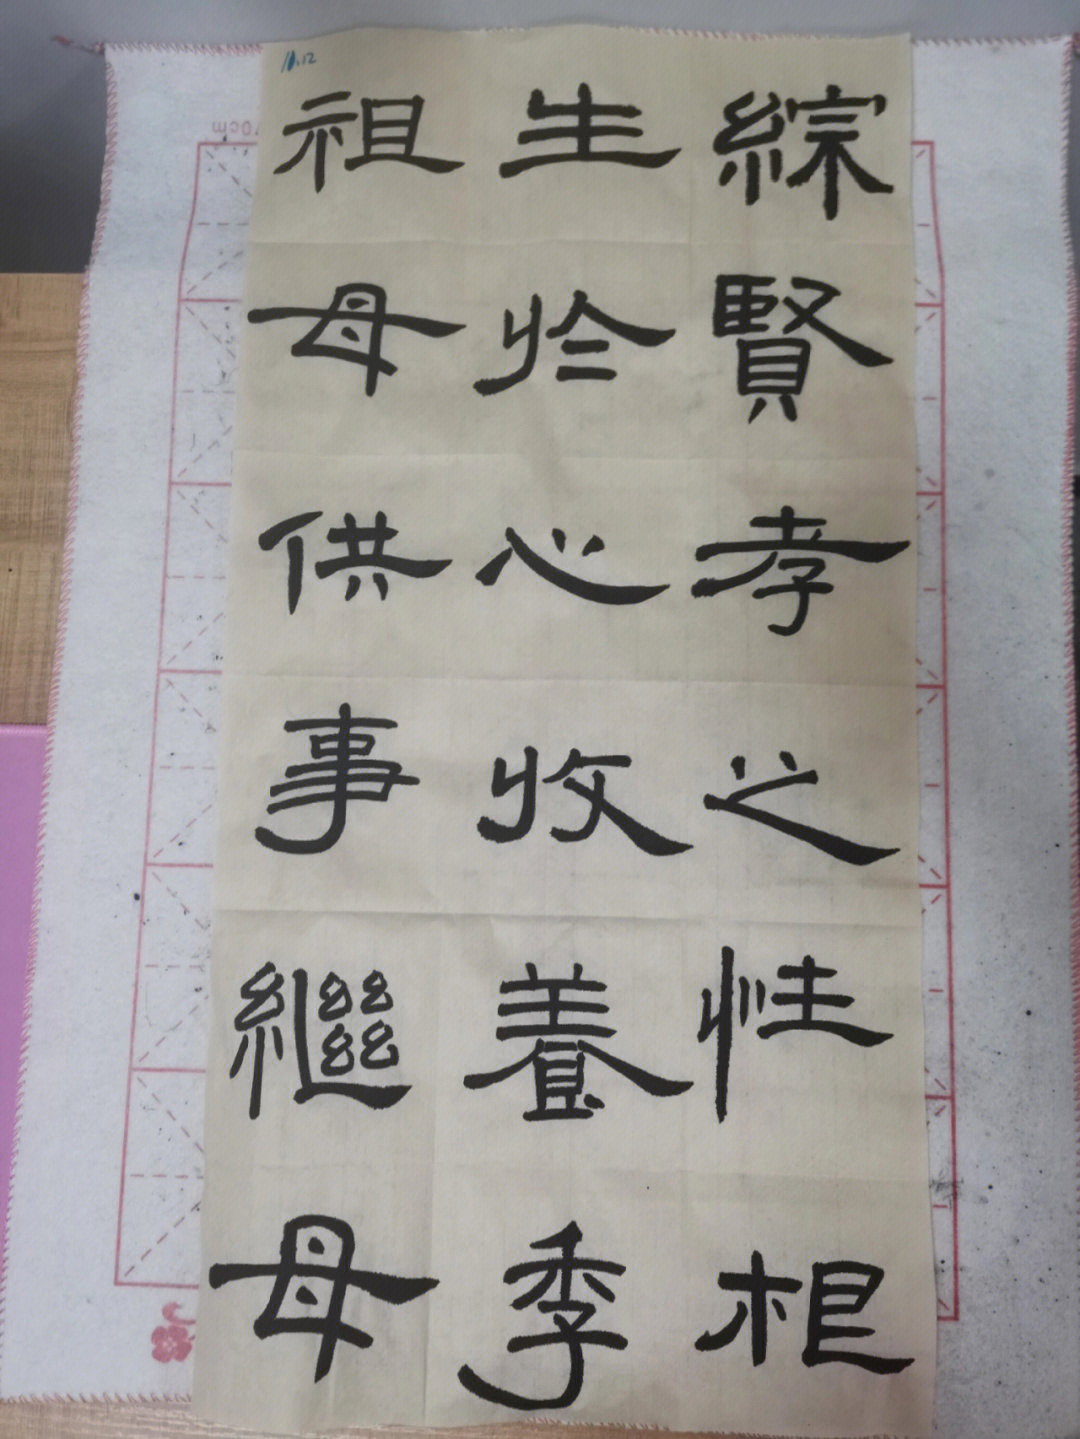 綜賢孝之性根
生於心收養季
祖母供事繼母